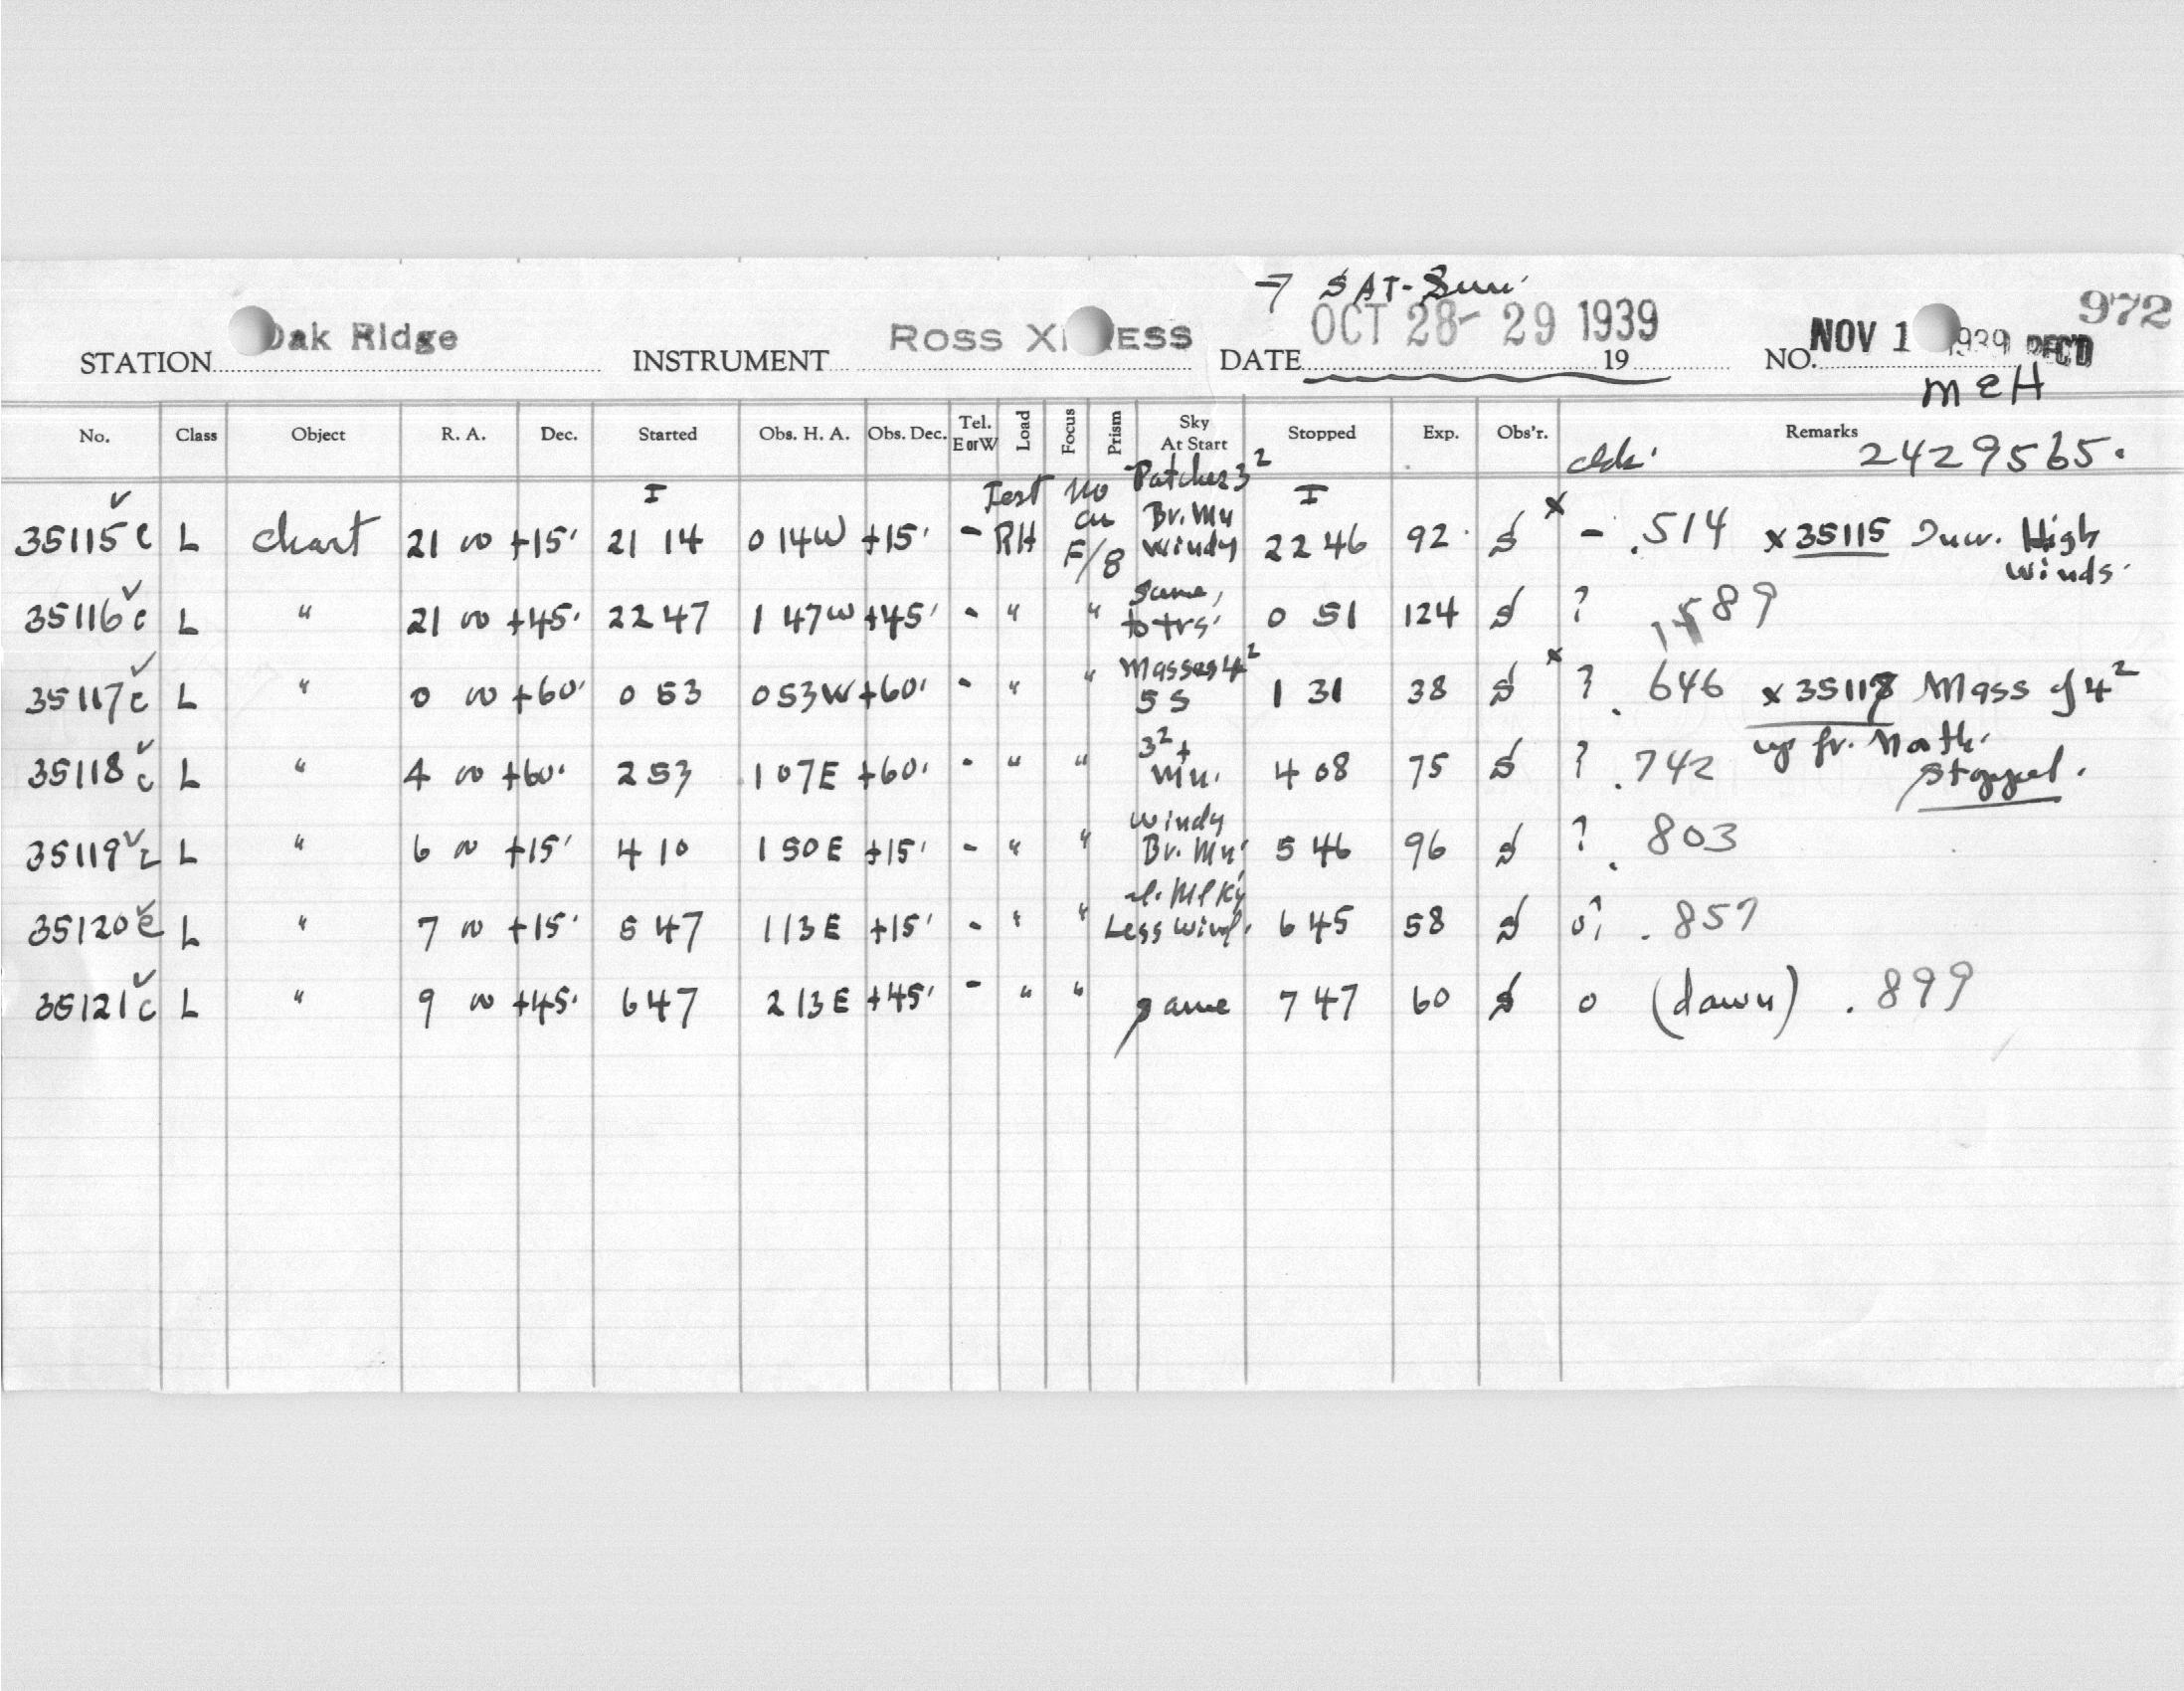 → SAT-Sun.
STATION Oak Ridge INSTRUMENT ROSS X ESS DATE OCT 28-29 1939 19 NO. NOV 1 1939 REC'D 972
M E H
No. Class Object R. A. Dec. Started Obs. H. A. Obs. Dec. Tel. E or W Load Focus Prism Sky At Start Stopped Exp. Obs'r. clck. Remarks 2429565.
35115 c L chart 21 00 +15' I 21 14 0 14W +15' - Test RH No F/8 Patches 3² Br. Mn Windy I 22 46 92 S x - .514 x 35115 High Winds.
35116 c L " 21 00 +45' 22 47 1 47W +45' - " " Same, to trs. 0 51 124 S ? .589
35117 c L " 0 00 +60' 0 53 0 53W +60' - " " Masses 4² 5 S 1 31 38 S x ? .646 x 35117 Mass of 4²
up fr. North.
35118 c L " 4 00 +60' 2 53 1 07E +60' - " " 3² + Mn. 4 08 75 S ? .742 Stopped.
35119 c L " 6 00 +15' 4 10 1 50E +15' - " " Windy Br. Mn. 5 46 96 S ? .803
35120 c L " 7 00 +15' 5 47 1 13E +15' - " " Mlky Less Wind. 6 45 58 S 0? .857
35121 c L " 9 00 +45' 6 47 2 13E +45' - " " Same 7 47 60 S 0 (dawn) .899